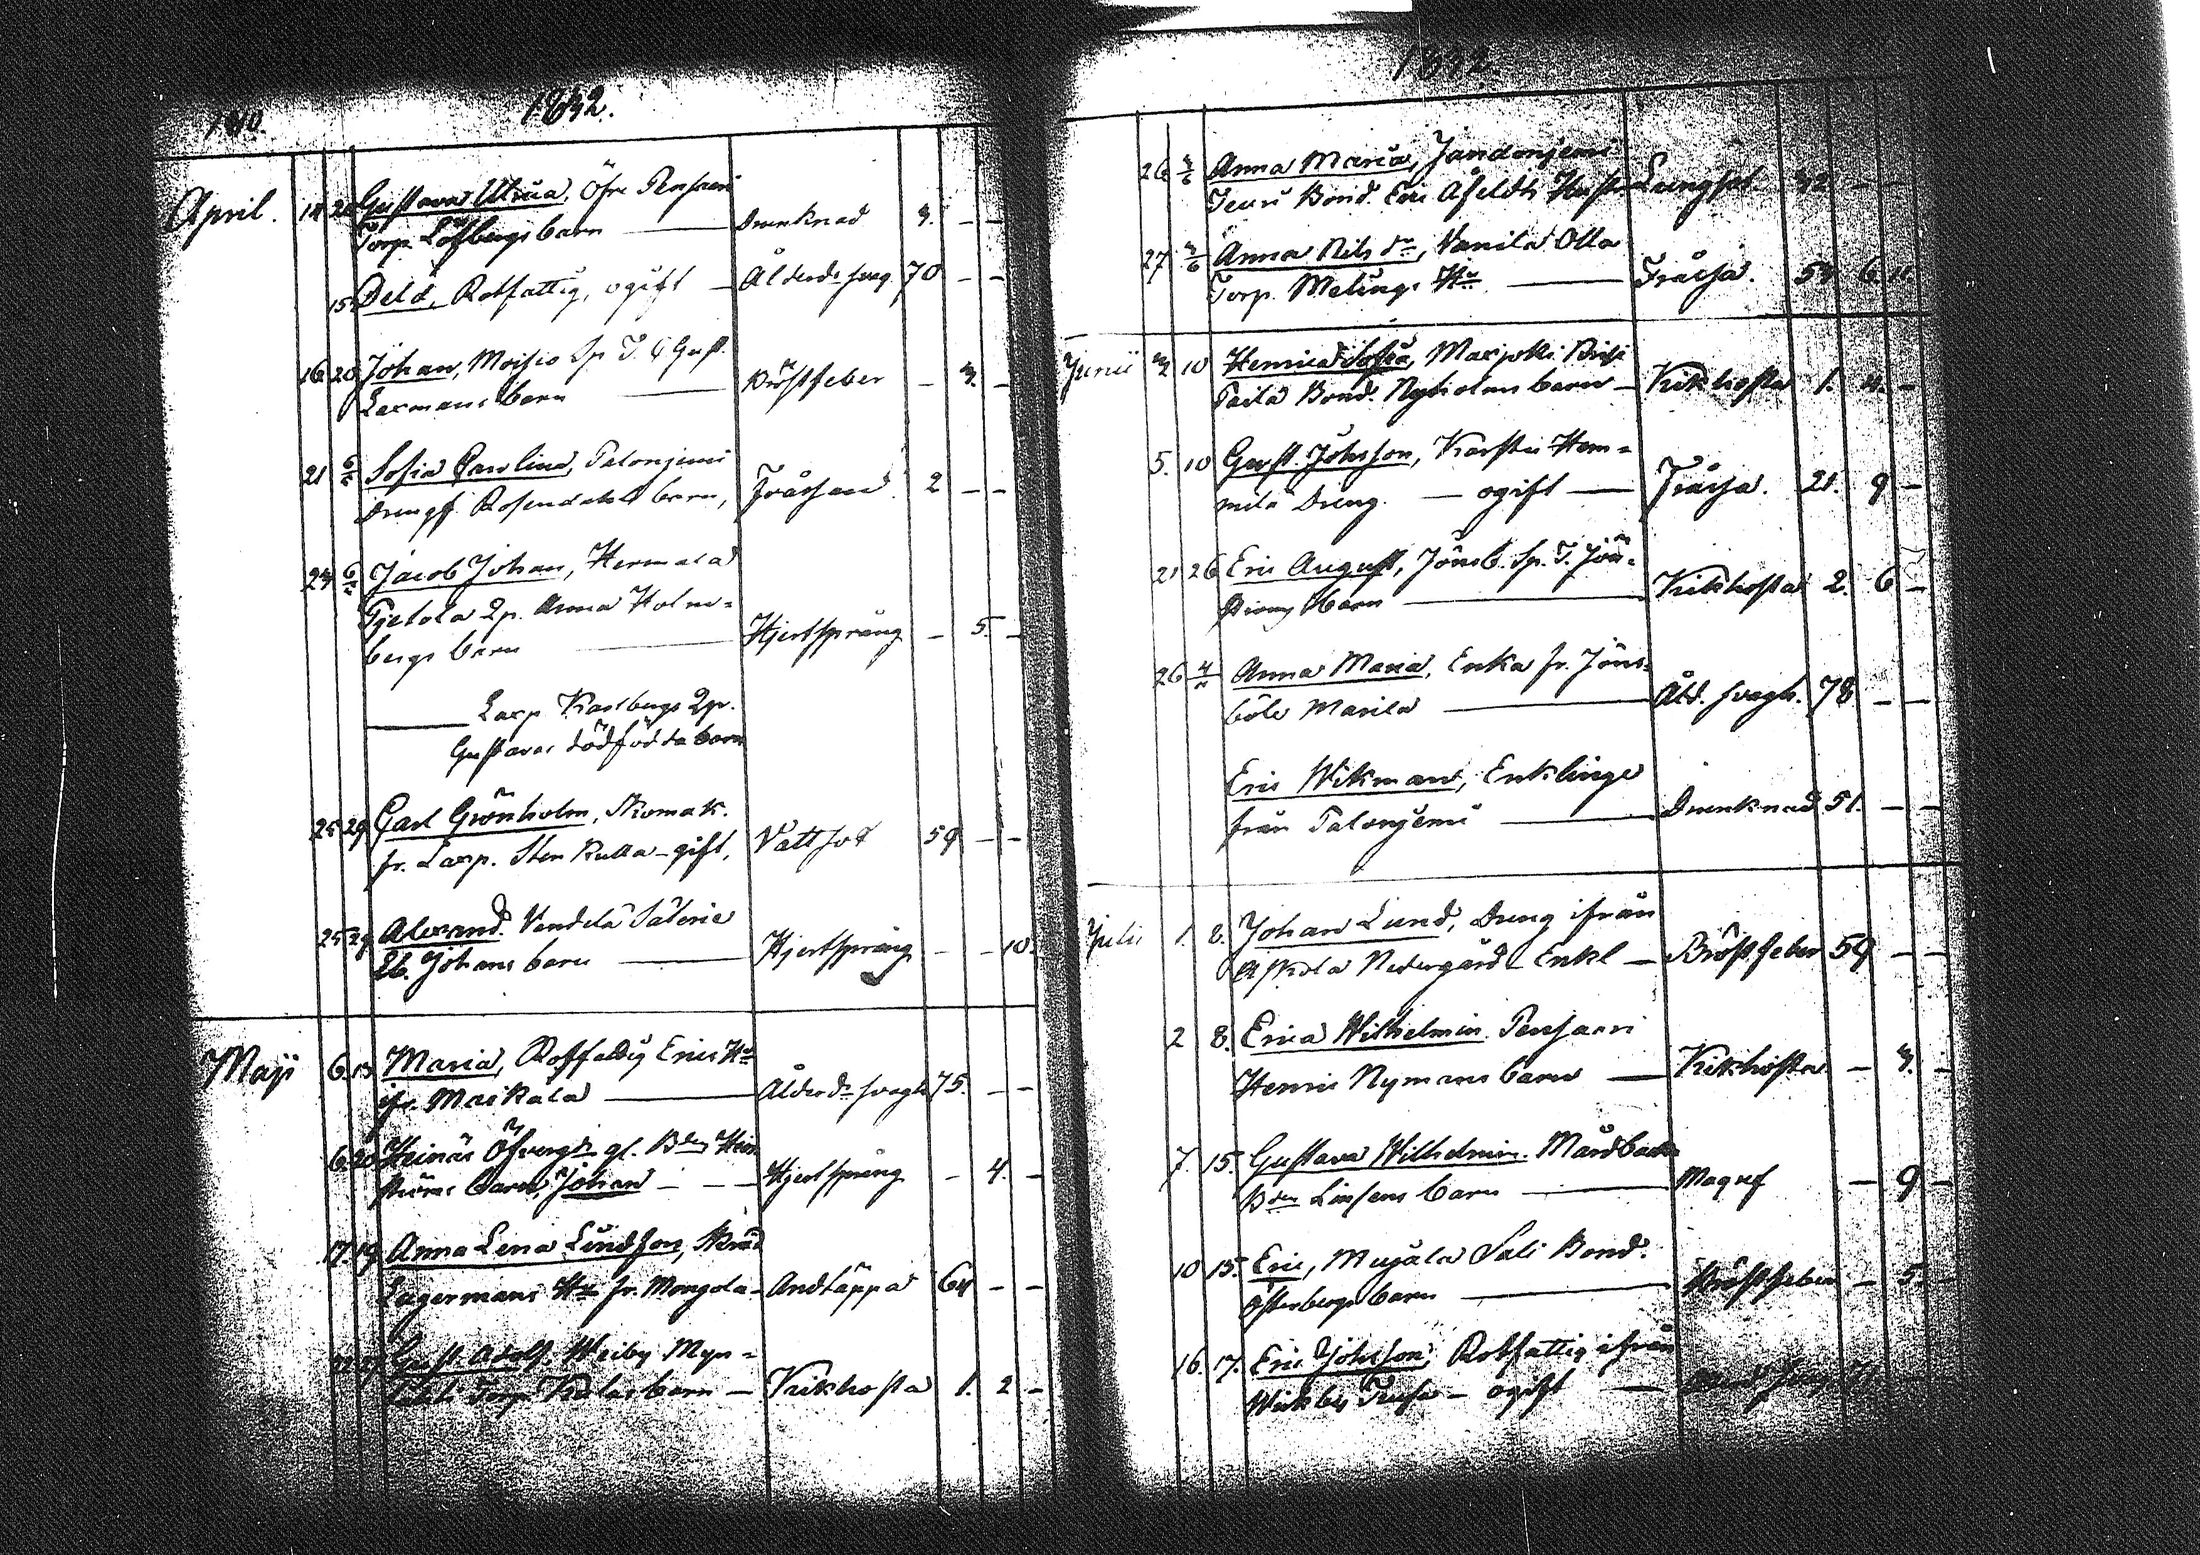 1832.
April. 14 20 Gustava Ulrica, Öfre Pensari
Torp. Löfbergs barn — Drunknad 3. — —
15 Deld, Rotfattig, ogift — Ålderds svag 70 — —
16 20 Johan, Moisio Sp. T. G. Gust.
Laxmans barn — Bröstfeber — 3. —
21 6/5 Sofia Carolina, Talonjemi
Drengf. Rosendahls barn, Fråssan 2 — —
24 6/5 Jacob Johan, Hermala
Tjetola 2p. Anna Holm=
bergs barn — Hjertsprång — 5. —
— Laxp. Karlbergs 2p.
Gustavas dödfödda barn
25 29 Carl Grönholm, Skomak.
fr. Laxp. Stenkulla — gift, Vattsot 59 — —
25 29 Alexand. Vendelä Säterie
Lb. Johans barn — Hjertsprång — — 10.
Maji 6. 13 Maria, Rotfattig Erics Hu
ifr. Maikala — Ålderds svagh 75. — —
6. 20 Heinäs Öfvergd. gl. Bden Hein
ströms barn, Johan — — Hjertsprång — 4. —
17. 19 Anna Lena Lindfon, Skräd
Lagermans Hu fr. Mongola — Andtäppa 64 — —
22 27 Gust. Adolf, Weiby Myn=
Torp. Kalas barn — Kikhosta 1. 2 —
1832.
26 3/6 Anna Maria, Jandonjemi
Bond. Eric Åfeldts Hustr Lungsot 32 — —
27 3/6 Anna Nils dr, Vanila Olla
Torp. Melings Hu — Fråssa. 53 6 11
Junii 3/2 10 Henrica Sofia, Marjokki
Taila Bond. Nyholms barn — Kikhosta 1. 4. —
5. 10 Gust. Johsson, Karstu Hem=
mila Dreng. — ogift — Fråssa. 21. 9 —
21 26 Eric August, Jönsb. Sp. T. Jön=
barn — Kikhosta 2. 6 —
26 Anna Maria, Enka fr. Jöns=
böle Marila — Åld. svagh. 78 — —
Eric Wikman, Enklinge
från Talonjemi — Drunknad 51. — —
Julii 1. 8. Johan Lund, Dreng ifrån
Askola Nedergård — Enkl — Bröstfeber 59 — —
2 8. Erica Wilhelmin. Pensarri
Henric Nymans barn — Kikhosta — 3. —
7. 15. Gustava Wilhelmin. Mårdbacka
Bden Linsens barn — Magref — 9 —
10 15. Eric, Mujala Sali Bond.
Österbergs barn — Bröstfeber — 5. —
16. 17. Eric Johsson, Rotfattig ifrån
— ogift —